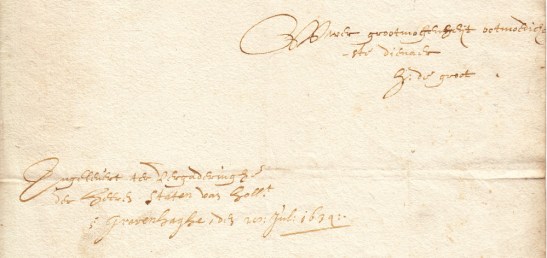 UWwer grootmoghentheijt ootmoedich
-ste dienaer
H: de groot
Ingelevert ter Vergaderingh
der Heeren Staten van Hollt
s Gravenhaghe den Jul: 1639: